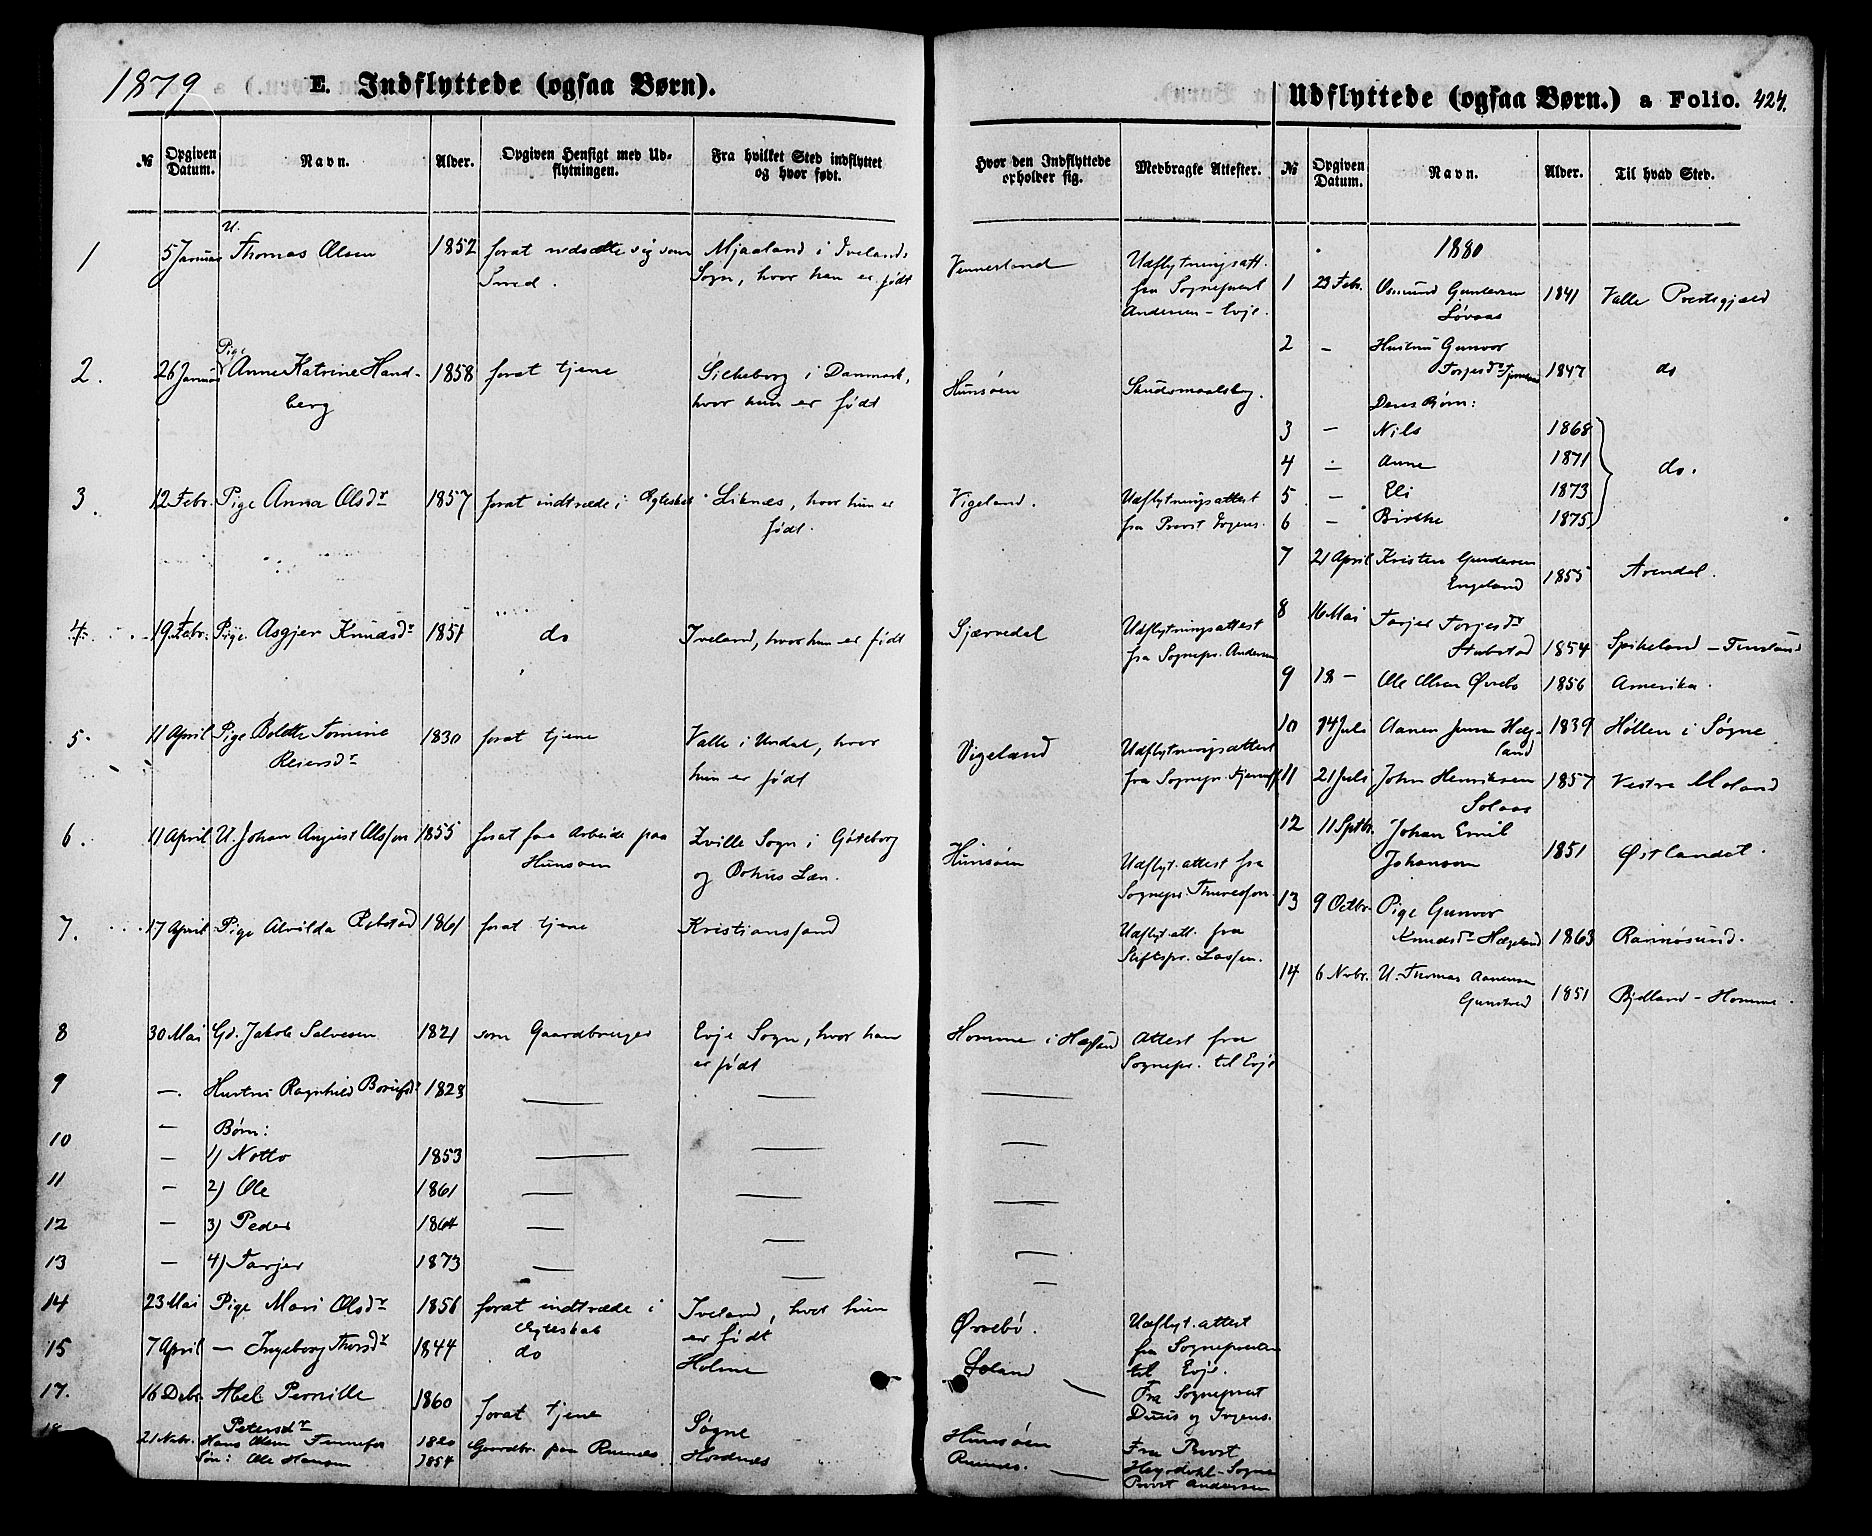 1879
E. Indflyttede (ogsaa Børn).
№ Opgiven Datum. Navn. Alder. Opgiven Hensigt med Udflytningen. Fra hvilket Sted indflyttet og hvor født.
1 5 Januar U. Thomas Olsen 1852 forat nedsætte sig som Mjaaland i Ivelands
Smed. Sogn, hvor han er født
2. 26 Januar Pige Anne Katrine Hand- 1858 forat tjene Silkeborg i Danmark,
berg hvor hun er født
3. 12 Febr. Pige Anna Olsdr 1857 forat indtræde i Ægteskab Liknes, hvor hun er
født.
4. 19 Febr. Pige Asgjer Knudsdr 1851 do Iveland, hvor hun er født
5. 11 April Pige Bolette Tomine 1830 forat tjene Valle i Undal, hvor
Reiersdr hun er født
6. 11 April U. Johan August Olsson 1855 forat faa Arbeide paa Sogn i Gøteborg
Hunsøen og Bohus Læn.
7. 17 April Pige Alvilda 1861 forat tjene Kristianssand
8 30 Mai Gd. Jakob Salvesen 1821 som Gaardbruger Evje Sogn, hvor han
er født
9 — Hustru Ragnhild 1823 — —
— Børn:
10 — 1) Notto 1853 — —
11 — 2) Ole 1861 — —
12 — 3) Peder 1864 — —
13 — 4) Tarjer 1873 — —
14 23 Mai Pige Mari Olsdr 1856 forat indtræde i Iveland, hvor hun
Ægteskab er født
15 7 April — Ingeborg Thorsdr 1844 do Holme
17. 16 Debr. Abel Pernille 1860 forat tjene Søgne
Petersdr
21 Nobr. Hans Olsen 1820 Gaardbr. paa
Søn: Ole Hansen 1854
Udflyttede (ogsaa Børn.) a Folio. 424.
Hvor den Indflyttede opholder sig. Medbragte Attester. № Opgiven Datum. Navn. Alder. Til hvad Sted.
Vennesland Udflytningsatt.
fra Sognepræst
Andersen - Evje.
Hunsøen Skudsmaalsbog.
Vigeland. Udflytningsattest
fra Provst Irgens.
Sjærvedal Udflytningsattest
fra Sognepr. Andersen
Vigeland Udflytningsattest
fra Sognepr.
Hunsøen Udflyt. attest fra
Sognepr. Thuresson
Udflyt. att. fra
Stiftspr. Lassen.
Homme i Hægland Attest fra
Sognepr. til Evje
—
—
—
—
—
Øvrebø. Udflyt. attest
fra Sognepresten
til Evje.
— Fra Sogneprest
Duus og Irgens.
Hunsøen Fra Provst
— Provst Andersen
1880
1 23 Febr. Osmund Gundersen 1841 Valle Prestegjæld
Løvaas
2 — Hustru Gunvor
Torjesdr 1847 do
Deres Børn:
3 — Nils 1868
4 — Anne 1871 do.
5 — Eli 1873
6 — Birthe 1875
7 21 April Kristen Gundersen
Engeland 1855 Arendal.
8 16 Mai Tarjer Torjesdr
Stubstad 1854 Spikeland - Finsland
9 18 — Ole Olsen Øvrebø 1856 Amerika.
10 14 Juli Aanen Jensen Hæg- 1839 Høllen i Søgne
land
11 21 Juli John Henriksen 1857 Vestre Moland
Solaas
12 11 Sptbr. Johan Emil
Johanson 1851 Østlandet.
13 9 Octbr. Pige Gunvor
Knudsdr Hægeland 1863 Randøsund.
14 6 Nobr. U. Thomas Aanensen
1851 Bjelland - Homme.